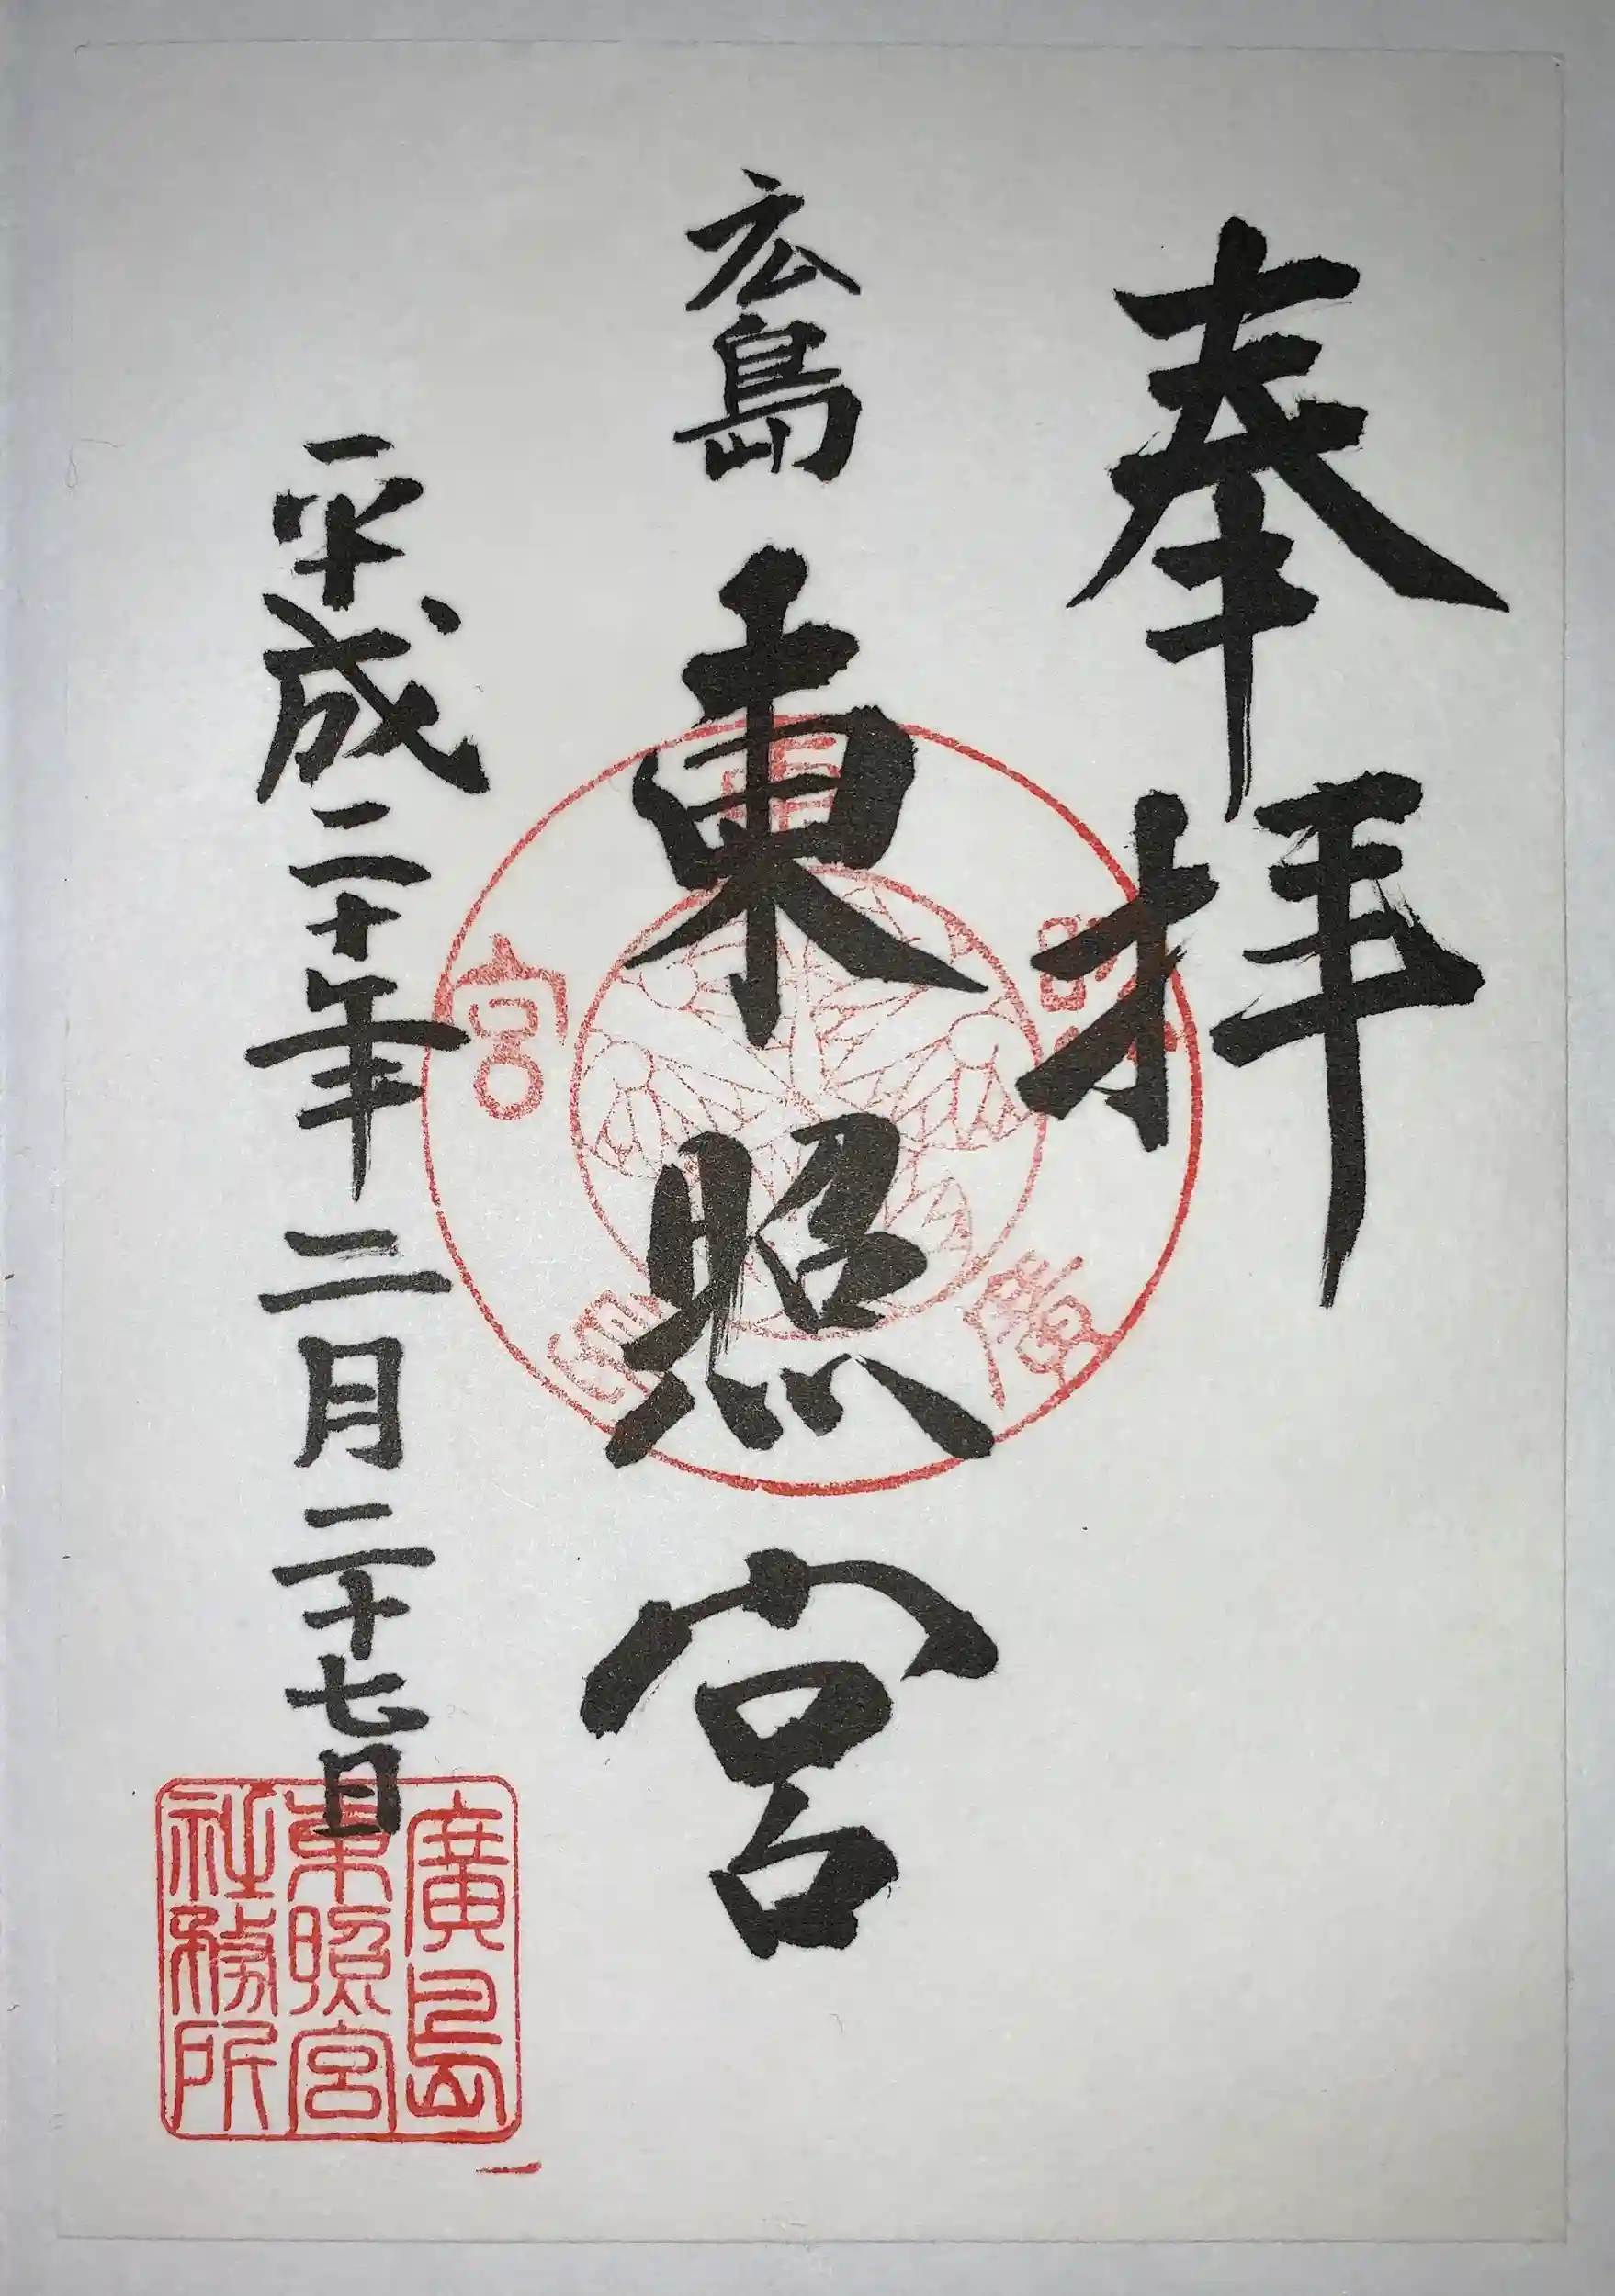 奉拝
広島 東照宮
平成二十年二月二十七日
廣島東照宮
廣島
東照宮
社務所